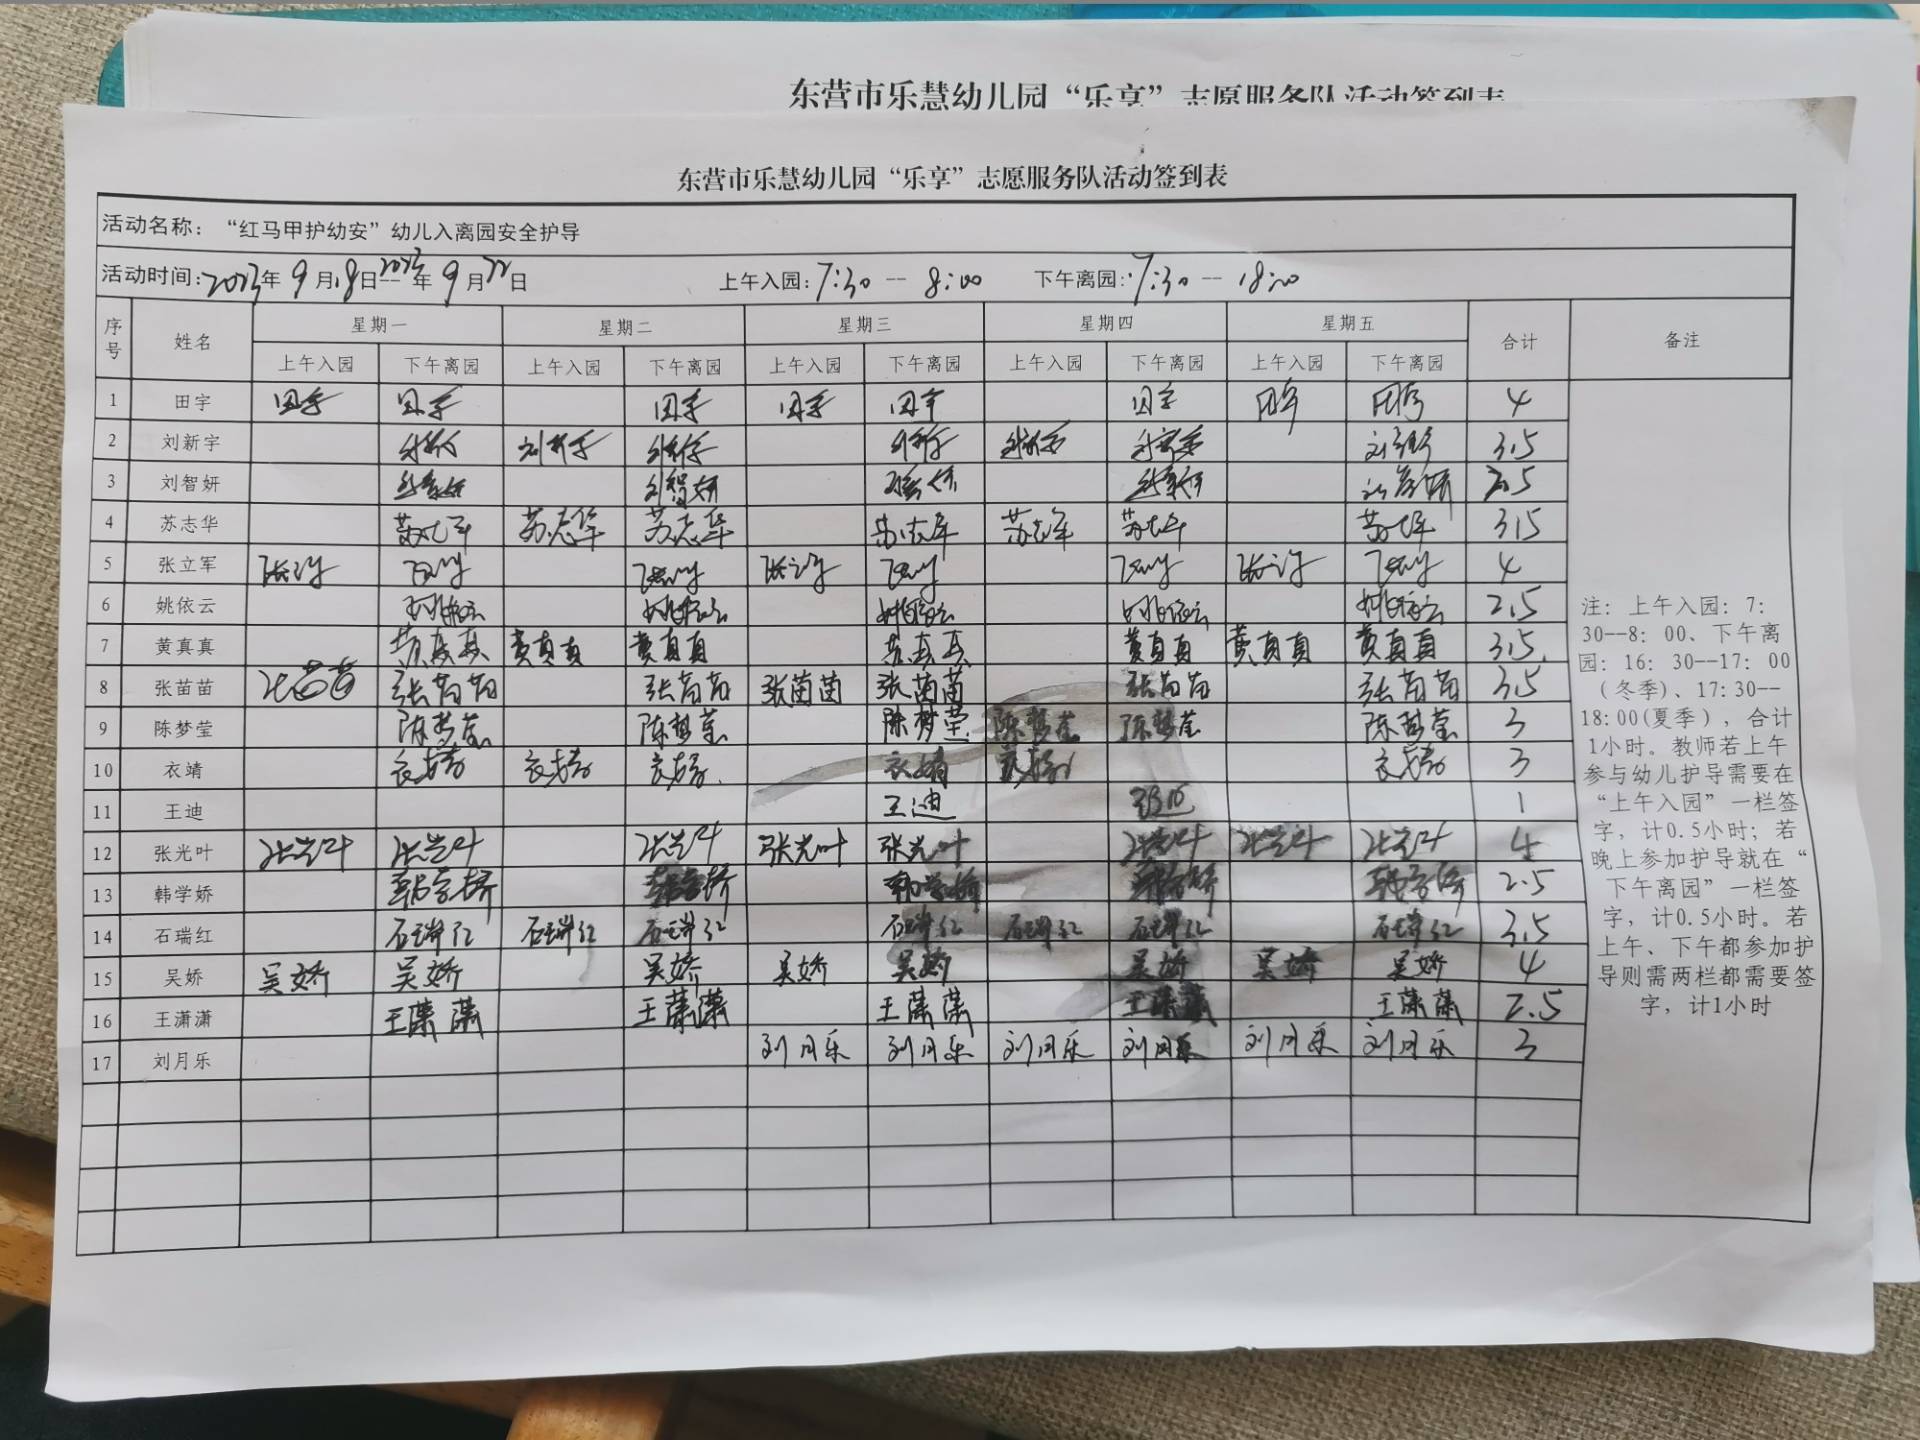 东营市乐慧幼儿园“乐享”志愿服务队活动签到表
东营市乐慧幼儿园“乐享”志愿服务队活动签到表
活动名称：“红马甲护幼安”幼儿入离园安全护导
活动时间:2023年9月18日--2023年9月22日 上午入园:7:30 -- 8:00 下午离园:17:30 -- 18:00
序号 姓名 星期一 星期二 星期三 星期四 星期五 合计 备注
上午入园 下午离园 上午入园 下午离园 上午入园 下午离园 上午入园 下午离园 上午入园 下午离园
1 田宇 田宇 田宇 田宇 田宇 田宇 田宇 田宇 田宇 4
2 刘新宇 刘新宇 刘新宇 刘新宇 刘新宇 刘新宇 刘新宇 刘新宇 3.5
3 刘智妍 刘智妍 刘智妍 刘智妍 刘智妍 刘智妍 2.5
4 苏志华 苏志华 苏志华 苏志华 苏志华 苏志华 苏志华 苏志华 3.5
5 张立军 张立军 张立军 张立军 张立军 张立军 张立军 张立军 张立军 4
6 姚依云 姚依云 姚依云 姚依云 姚依云 姚依云 2.5
7 黄真真 黄真真 黄真真 黄真真 黄真真 黄真真 黄真真 黄真真 3.5
8 张苗苗 张苗苗 张苗苗 张苗苗 张苗苗 张苗苗 张苗苗 张苗苗 3.5
9 陈梦莹 陈梦莹 陈梦莹 陈梦莹 陈梦莹 陈梦莹 陈梦莹 3
10 衣靖 衣靖 衣靖 衣靖 衣靖 衣靖 衣靖 3
11 王迪 王迪 王迪 1
12 张光叶 张光叶 张光叶 张光叶 张光叶 张光叶 张光叶 张光叶 张光叶 4
13 韩学娇 韩学娇 韩学娇 韩学娇 韩学娇 韩学娇 2.5
14 石瑞红 石瑞红 石瑞红 石瑞红 石瑞红 石瑞红 石瑞红 石瑞红 3.5
15 吴娇 吴娇 吴娇 吴娇 吴娇 吴娇 吴娇 吴娇 吴娇 4
16 王潇潇 王潇潇 王潇潇 王潇潇 王潇潇 王潇潇 2.5
17 刘月乐 刘月乐 刘月乐 刘月乐 刘月乐 刘月乐 刘月乐 3
注：上午入园：7：
30--8：00、下午离
园：16：30--17：00
（冬季）、17:30--
18:00(夏季），合计
1小时。教师若上午
参与幼儿护导需要在
“上午入园”一栏签
字，计0.5小时；若
晚上参加护导就在“
下午离园”一栏签
字，计0.5小时。若
上午、下午都参加护
导则需两栏都需要签
字，计1小时